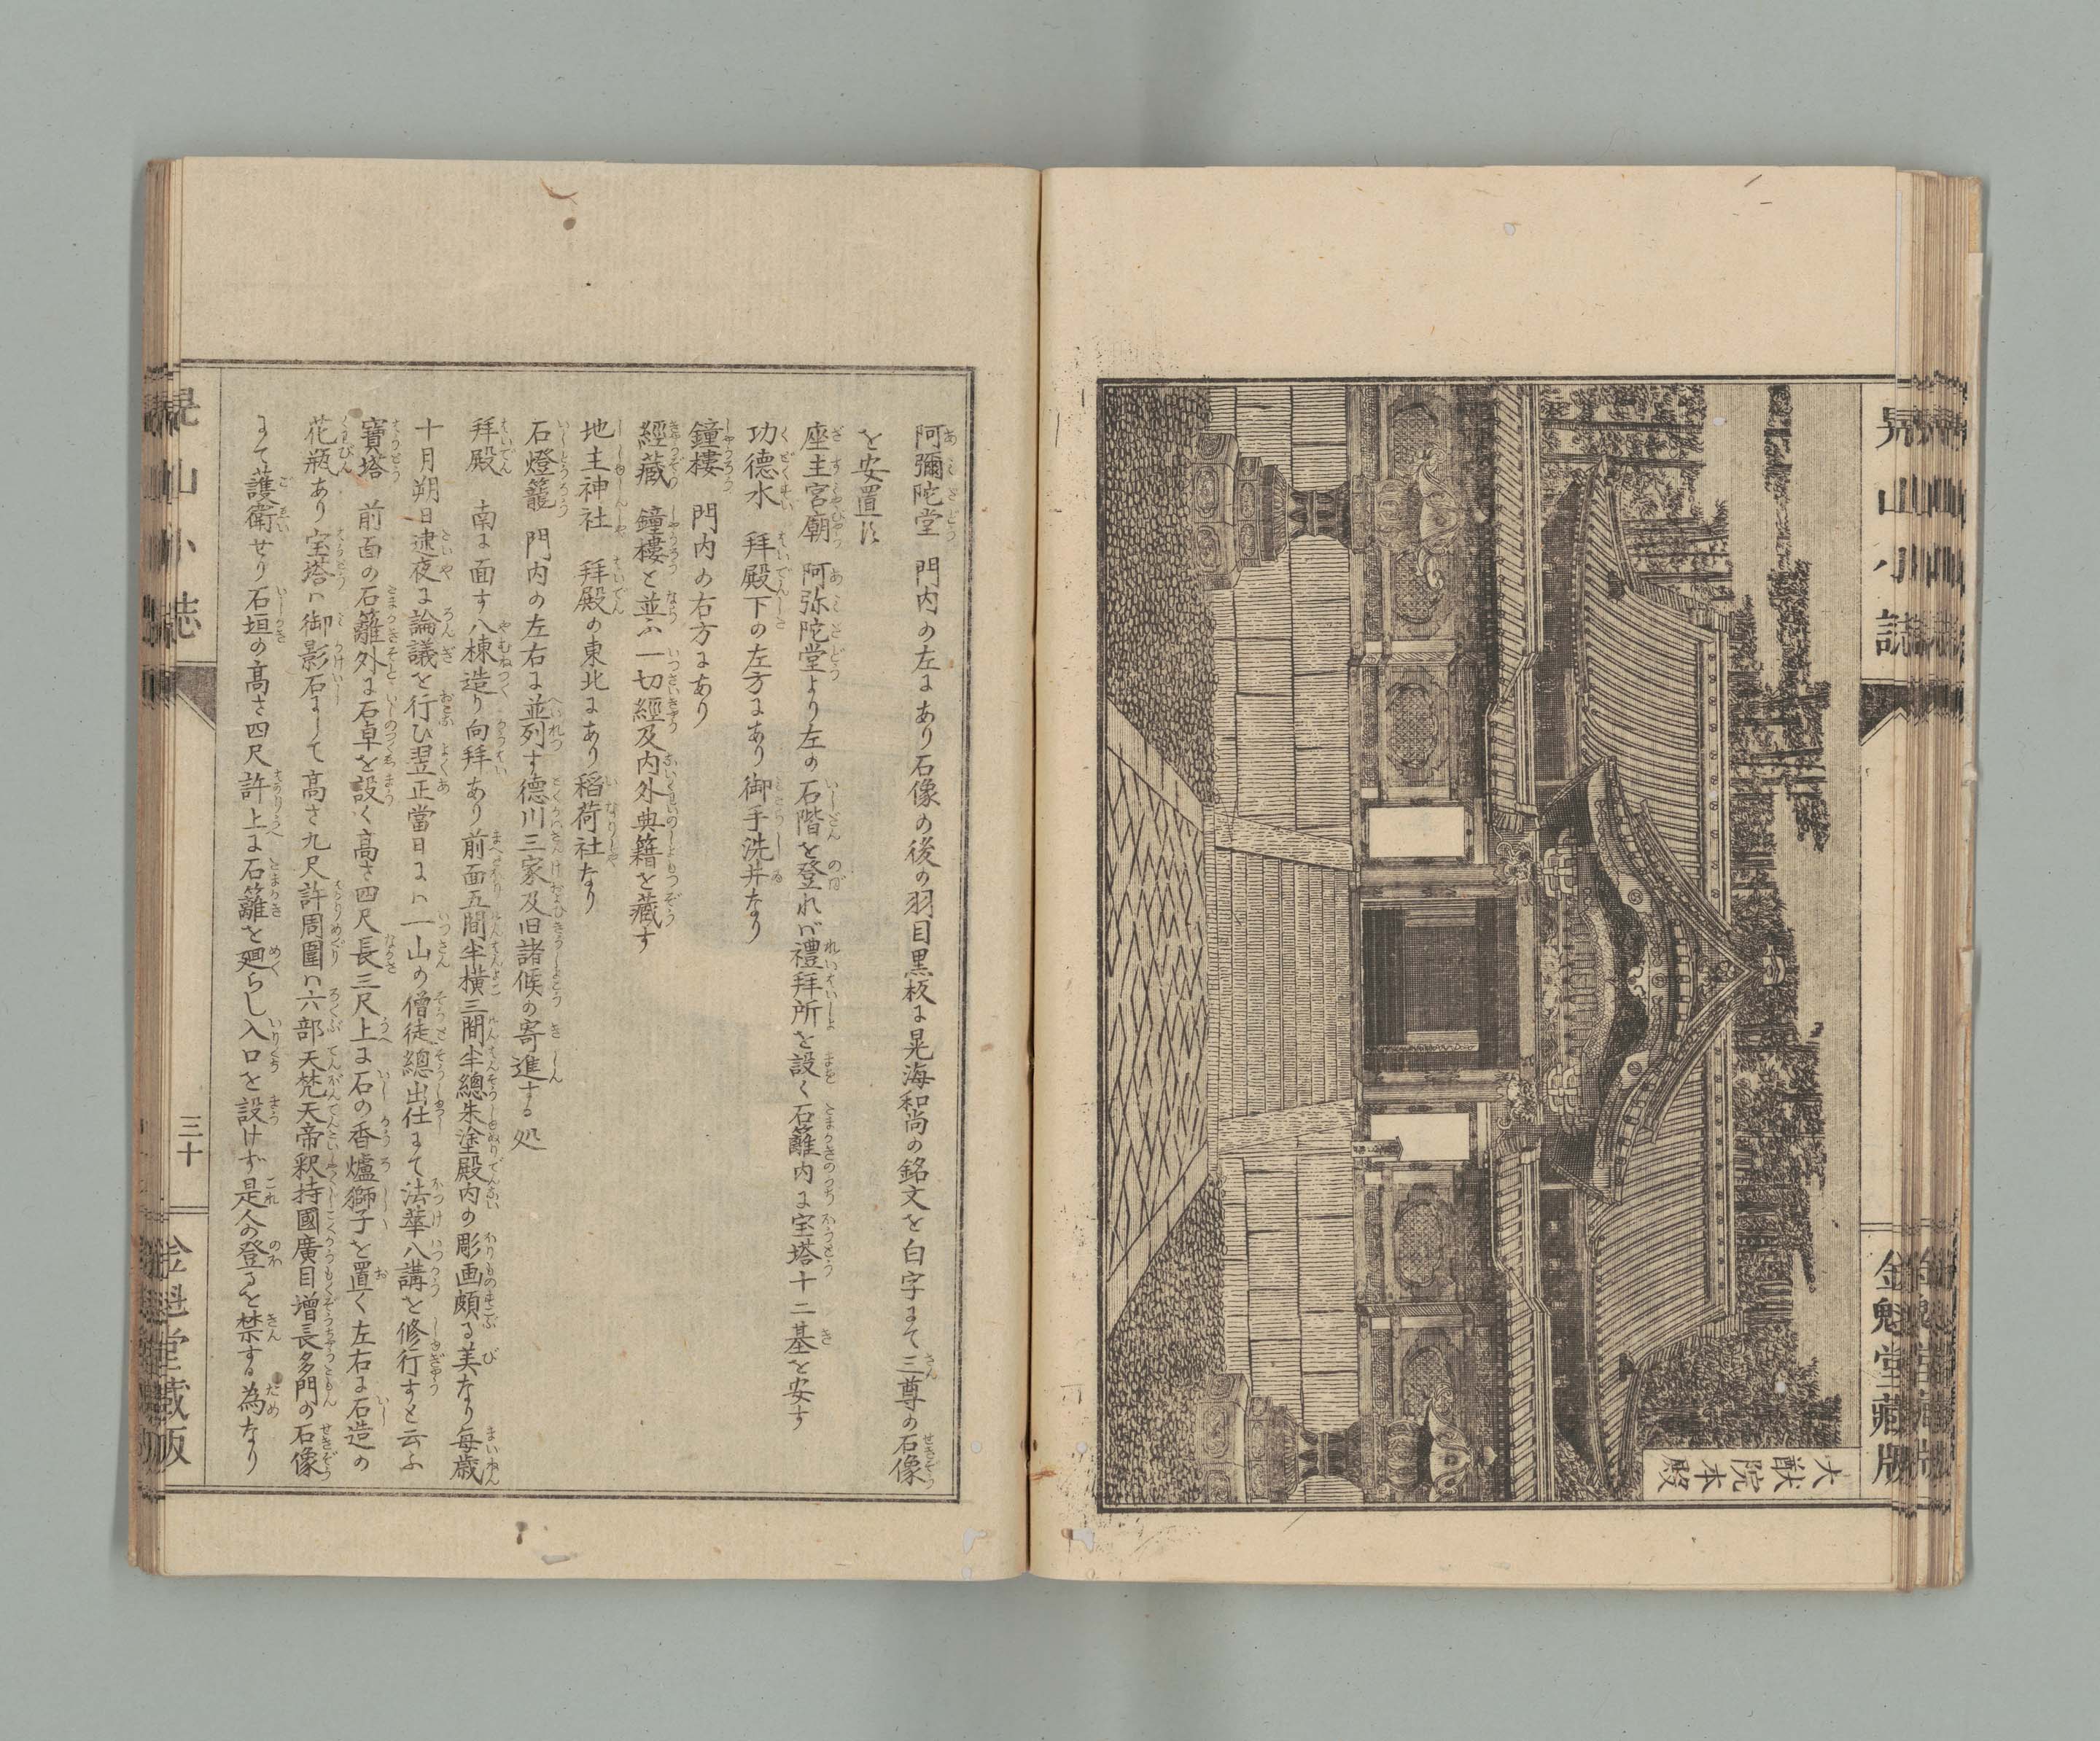 晃山小誌
金魁堂藏版
大猷院本殿
阿彌陀堂　門内の左にあり石像の後の羽目黒板に晃海和尚の銘文を白字にて三尊の石像
を安置す
座主宮廟　阿弥陀堂より左の石階を登れバ禮拜所を設く石籬内に宝塔十二基を安す
功德水　拜殿下の左方にあり御手洗井なり
鐘樓　門内の右方にあり
經藏　鐘樓と並ふ一切經及内外典籍を藏す
地主神社　拜殿の東北にあり稻荷社なり
石燈籠　門内の左右に並列す德川三家及旧諸候の寄進する処
拜殿　南に面す八棟造り向拜あり前面五間半横三間半總朱塗殿内の彫画頗る美なり毎歳
十月朔日逮夜に論議を行ひ翌正當日にハ一山の僧徒總出仕にて法華八講を修行すと云ふ
寶塔　前面の石籬外に石卓を設く高さ四尺長三尺上に石の香爐獅子を置く左右に石造の
花瓶あり宝塔ハ御影石にして高さ九尺許周圍ハ六部天梵天帝釈持國廣目增長多門の石像
にて護衛せり石垣の高さ四尺許上に石籬を廻らし入口を設けず是人の登るを禁する為なり
晃山小誌
三十
金魁堂藏版